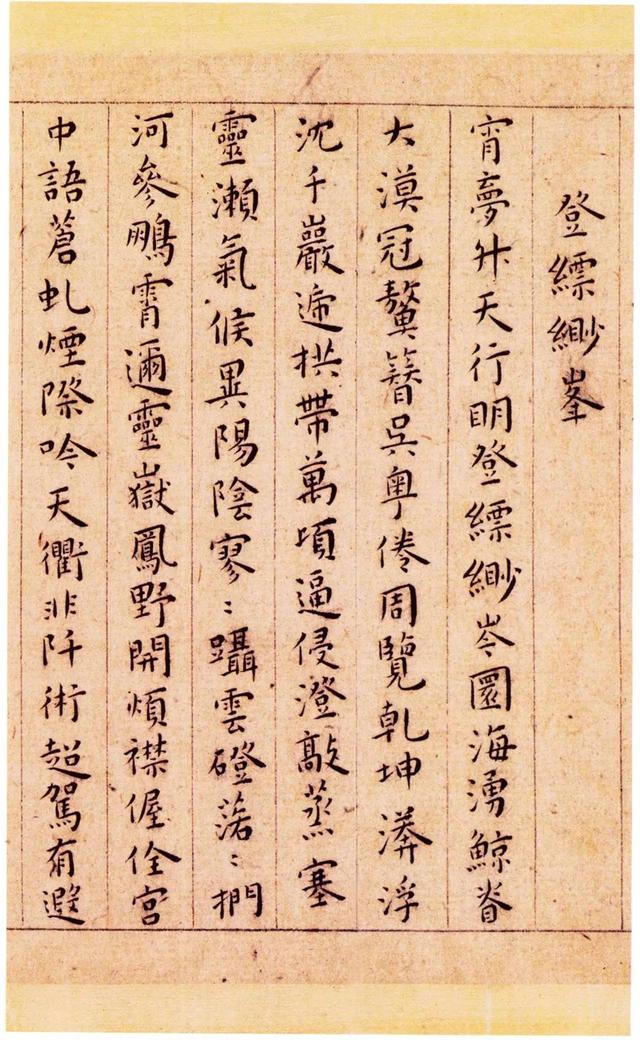 登縹緲峯
宵夢升天行朙登縹緲岑圜海湧鯨脊
大漠冠鼇簪吳粤倦周覽乾坤漭浮
沈千巖遞拱帶萬頃逼侵澄歊蒸塞
靈瀨氣候異陽陰寥〻躡雲磴萿〻捫
河參鵬霄邇靈嶽鳳野開煩襟偓佺宮
中語蒼虬煙際吟天衢非阡術超駕有避